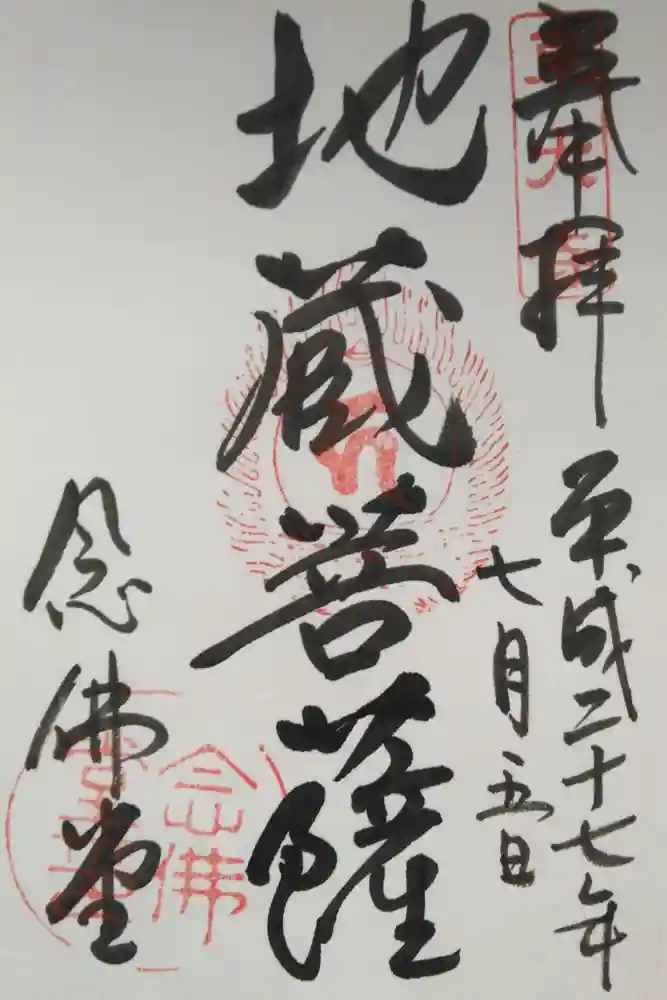 奉拝
平成二十七年
七月五日
地蔵菩薩
念佛堂
念佛